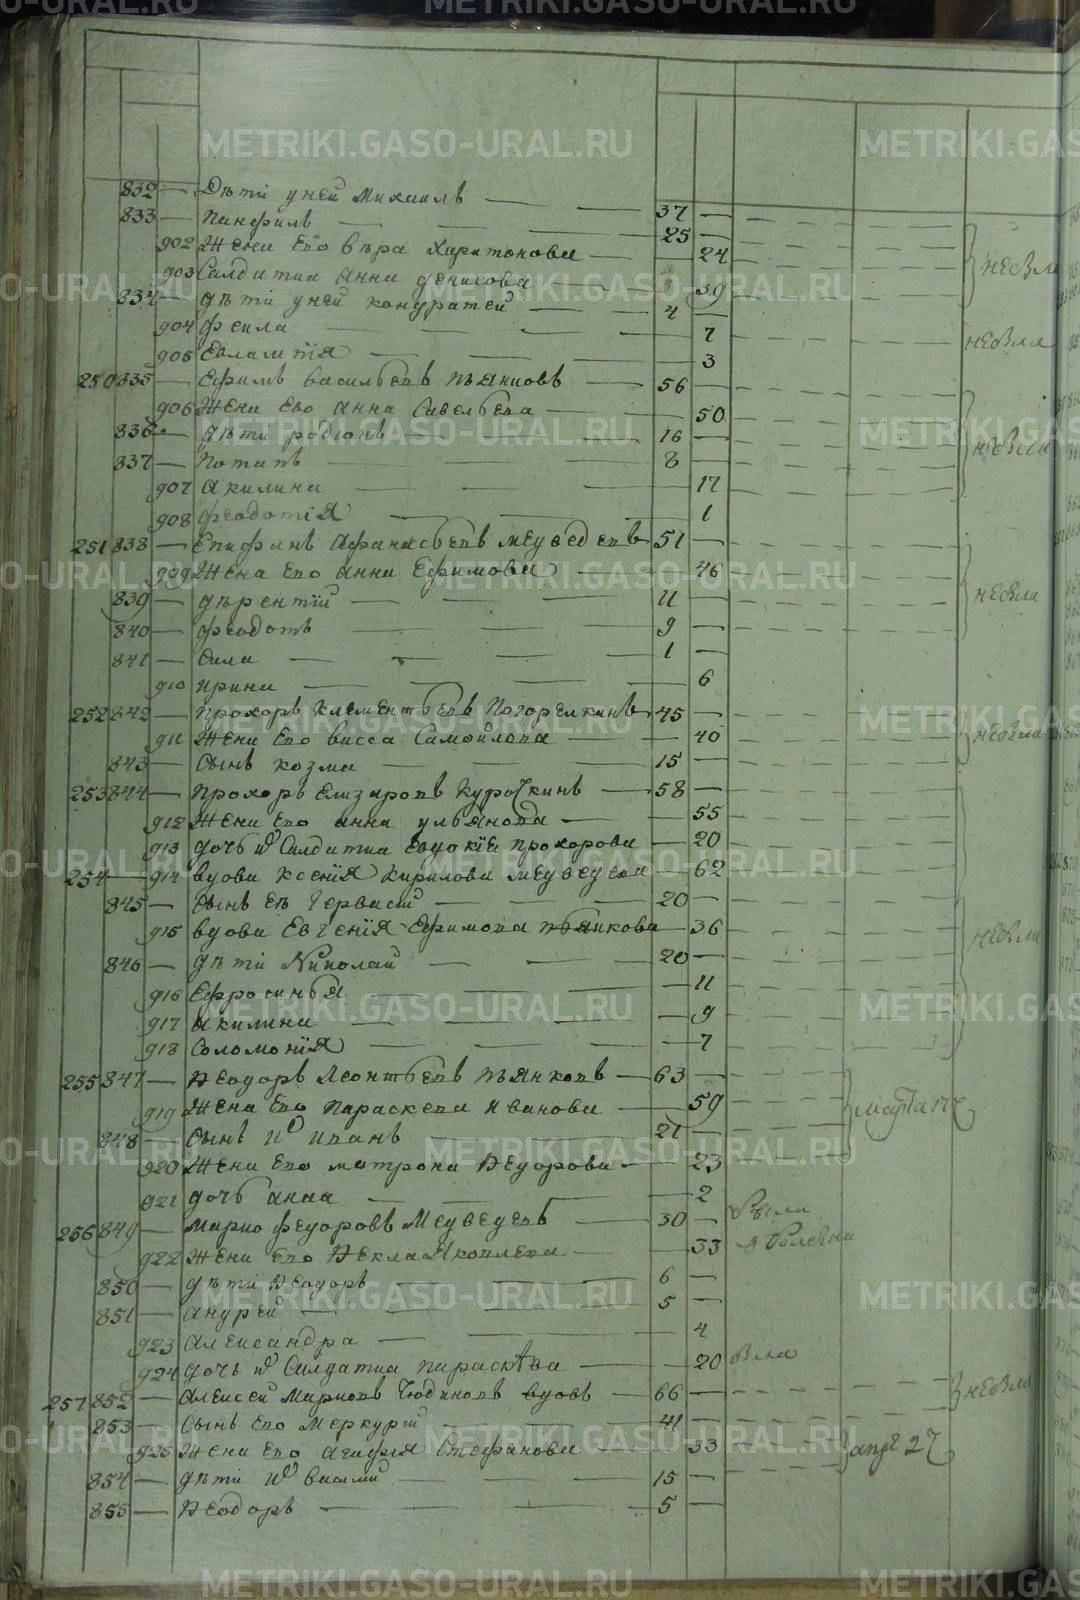 METRIKI.GASO-URAL.RU
832 — Дѣти у ней Михаилъ — — 37 —
833 — Панфилъ — — 25 —
902 Жена Его Вѣра Харитонова — 24
903 Салдатка Анна Денисова — 39
834 — Дѣти у ней Кондратей — 4 —
904 Фекла — — 7
905 Евлампія — — 3
250 835 — Ефимъ Васильевъ Пьянковъ — 56 —
906 Жена Его Анна Савельева — 50
836 — Дѣти Родіонъ — 16 —
837 — Потапъ — 8 —
907 Акилина — — 17
908 Феодотія — — 1
251 838 — Епифанъ Афанасьевъ Медведевъ 51 —
909 Жена Его Анна Ефимова — 46
839 — Дѣрентій — 11 —
840 — Феодотъ — 9 —
841 — Сила — 1 —
910 Ирина — 6
252 842 — Прохоръ Клементьевъ Погорелкинъ 45 —
911 Жена Его Васса Самойлова — 40
843 — Сынъ Козма — 15 —
253 844 — Прохоръ Елизаровъ Курочкинъ — 58 —
912 Жена Его Анна Ульянова — 55
913 Дочь Салдатка Евдокія Прохорова — 20
254 — 914 Вдова Ксенія Кирилова Медведева — 62
845 — Сынъ Ея Гервасій — 20 —
915 Вдова Евгенія Ефимова Пьянкова — 36
846 — Дѣти Николай — 20 —
916 Ефросинья — 11
917 Акилина — 9
918 Соломонія — 7
255 847 — Ѳеодоръ Леонтьевъ Пьянковъ — 63 —
919 Жена Его Параскева Иванова — 59
848 — Сынъ Иванъ — 21 —
920 Жена Его Матрона Ѳедорова — 23
921 Дочь Анна — 2
256 849 — Марко Федоровъ Медведевъ — 30 —
922 Жена Его Ѳекла Яковлева — 33
850 — Дѣти Ѳеодоръ — 6 —
851 — Андрей — 5 —
923 Александра — 4
924 Дочь Салдатка Параскѣва — 20
257 852 — Алексей Марковъ Чюдиновъ Вдовъ — 66 —
853 — Сынъ Его Меркурій — 41 —
925 Жена Его Агафия Стефанова — 33
854 — Дѣти Василий — 15 —
855 — Ѳеодоръ — 5 —